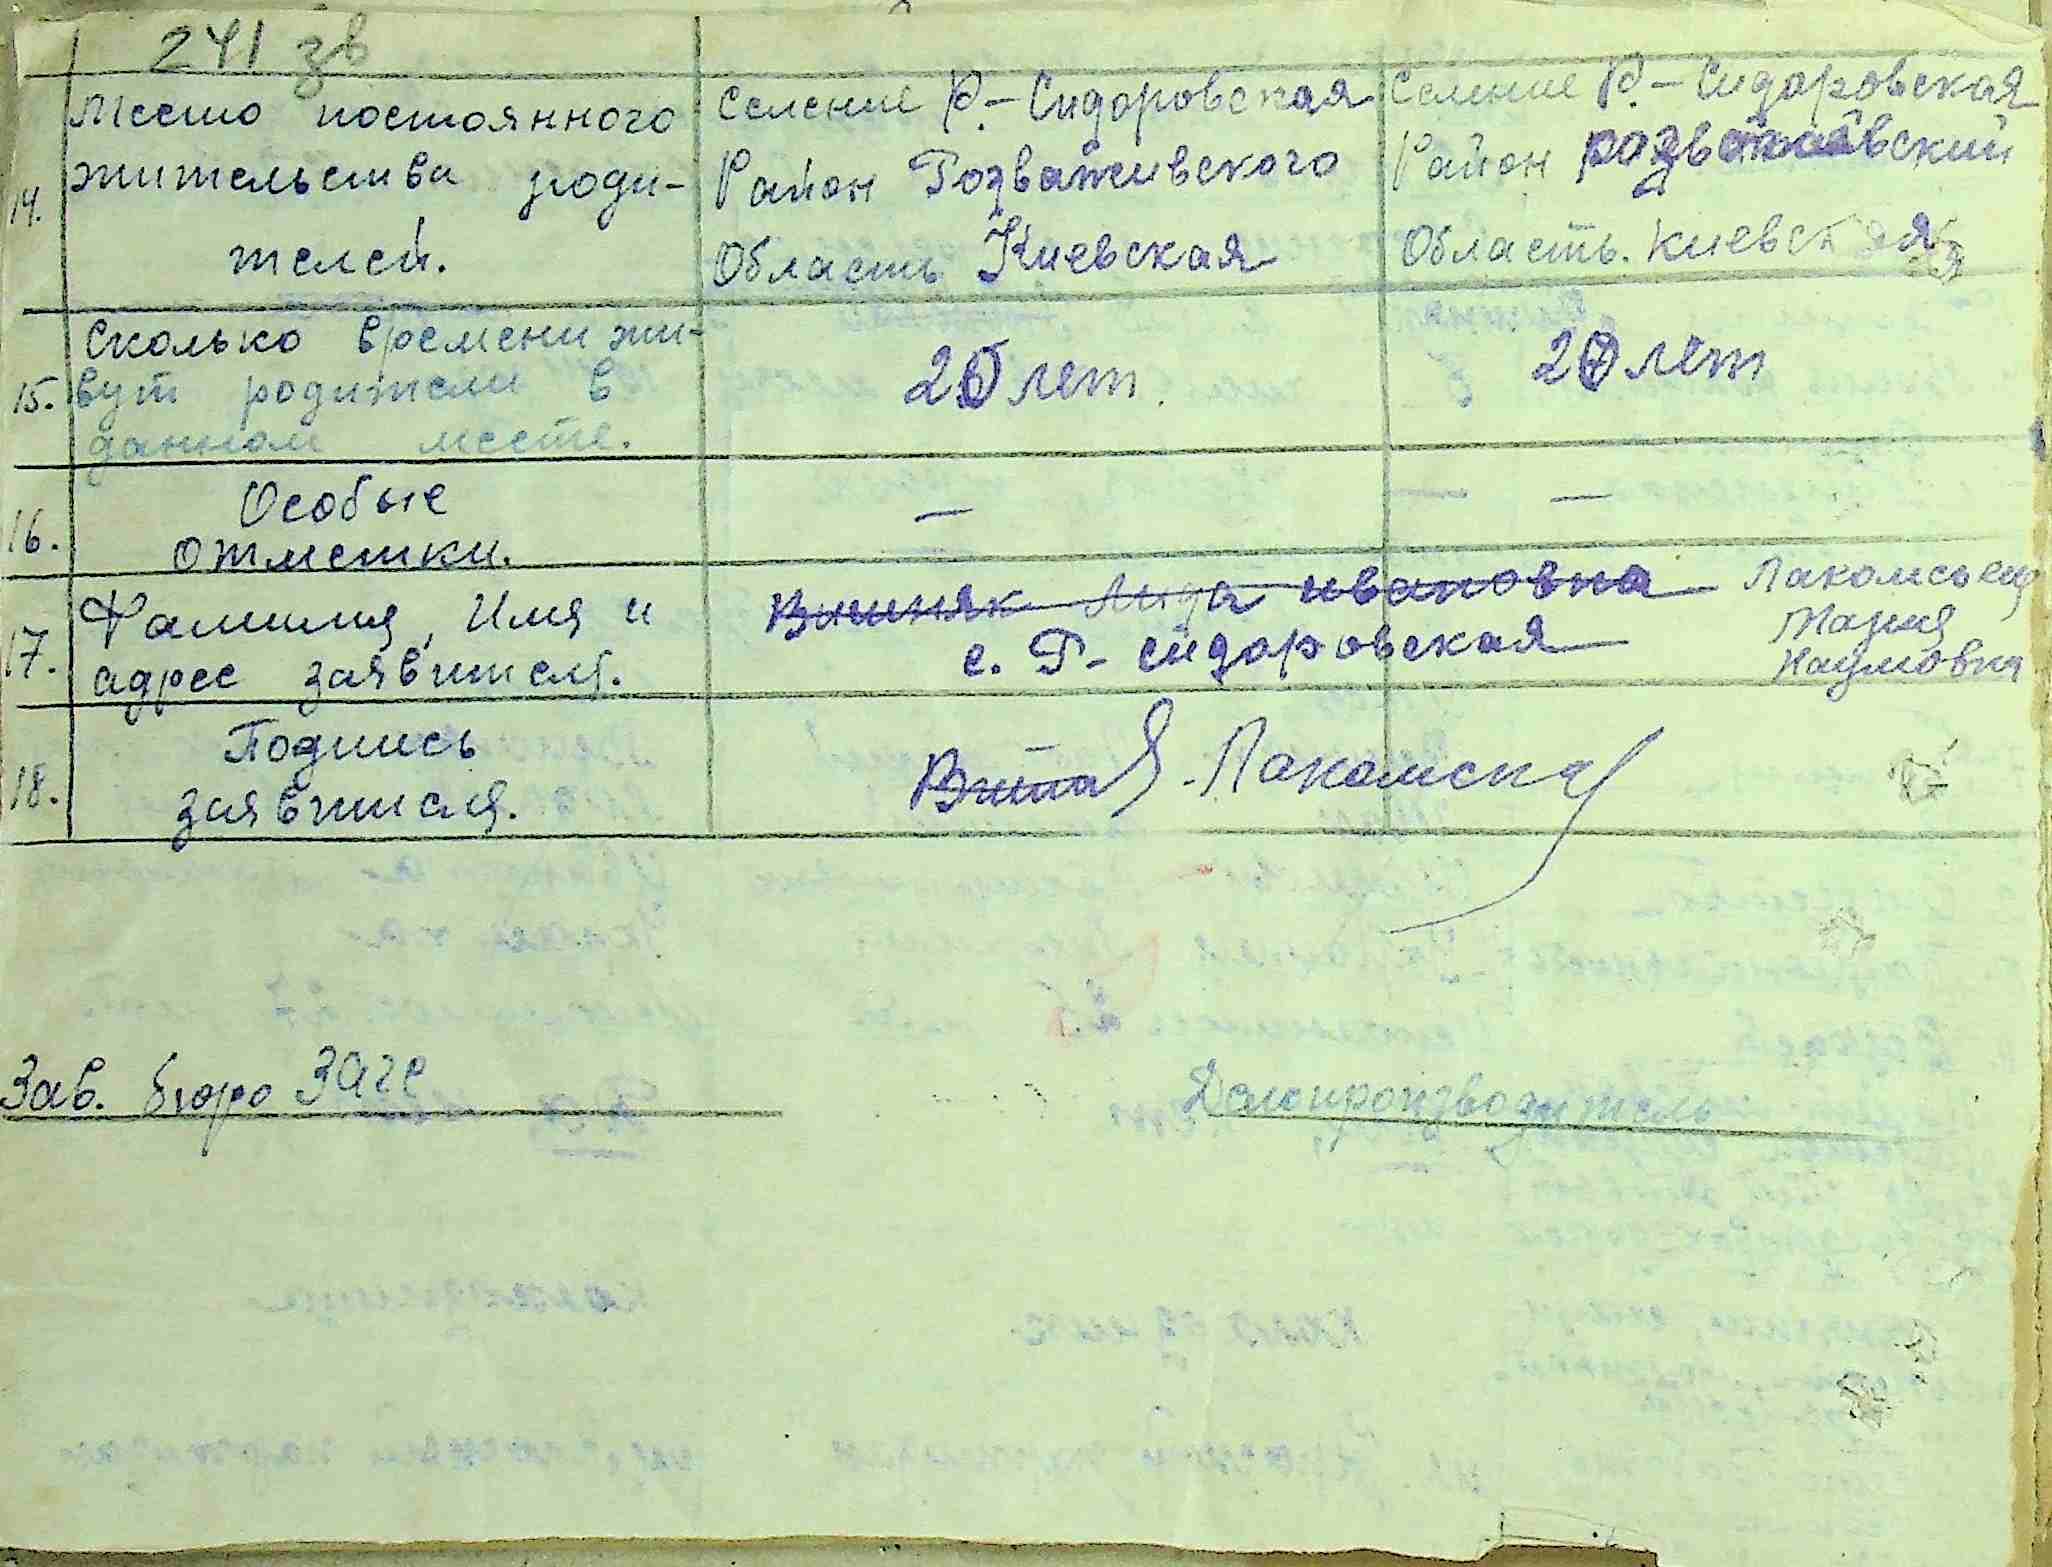 241 зв
14. Место постоянного жительства роди-
телей.
Селение Р.-Сидоровская
Район Розважевского
Область Киевская
Селение Р.-Сидоровская
Район розважевский
Область. Киевская
15. Сколько времени жи-
вут родители в
данном месте.
25 лет.
27 лет
16. Особые
отметки.
—
—
17. Фамилия, Имя и
адрес заявителя.
Вишняк Лида ивановна
с. Р- сидоровская
Мария
Наумовна
18. Подпись
заявителя.
Зав. бюро Загс
Делопроизводитель